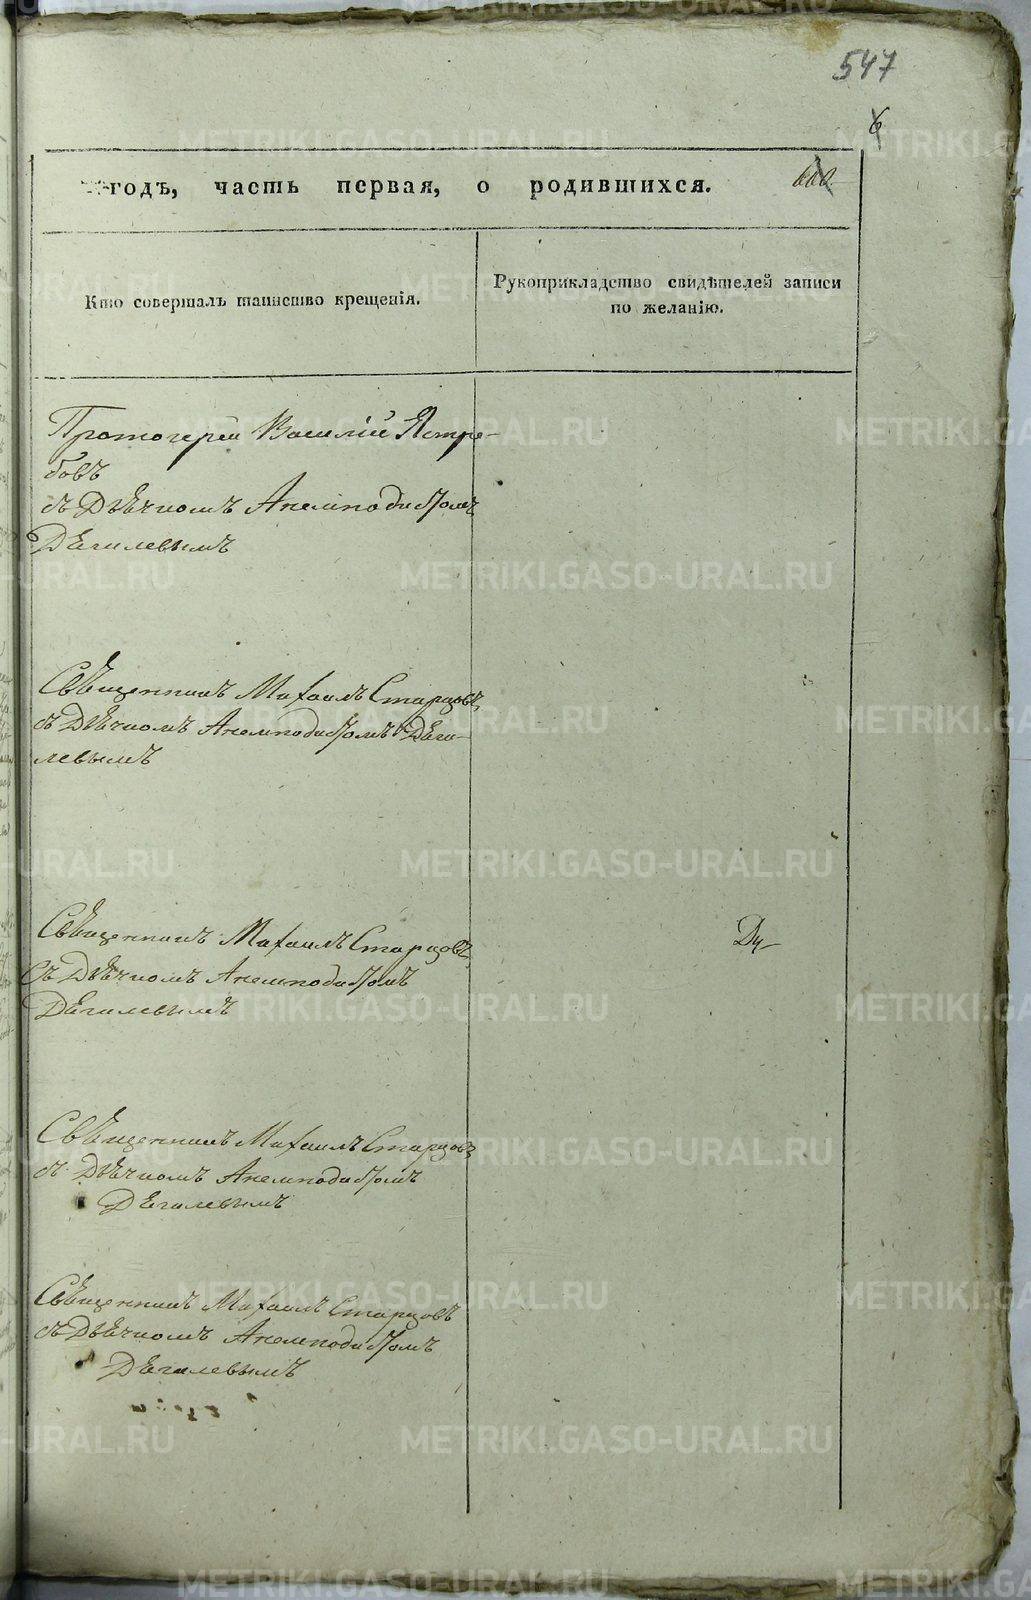 547
6
годъ, часть первая, о родившихся.
Кто совершалъ таинство крещенія.
Рукоприкладство свидѣтелей записи
по желанію.
Протоіерей Василій Ястре-
бовъ
съ Дьячкомъ Анемподистомъ
Дягилевымъ
Священникъ Михаилъ Старцовъ
съ Дьячкомъ Анемподистомъ Дяги-
левымъ
Священникъ Михаилъ Старцовъ,
съ Дьячкомъ Анемподистомъ
Дягилевымъ
Священникъ Михаилъ Старцовъ
съ Дьячкомъ Анемподистомъ
Дягилевымъ
Священникъ Михаилъ Старцовъ
съ Дьячкомъ Анемподистомъ
Дягилевымъ
METRIKI.GASO-URAL.RU